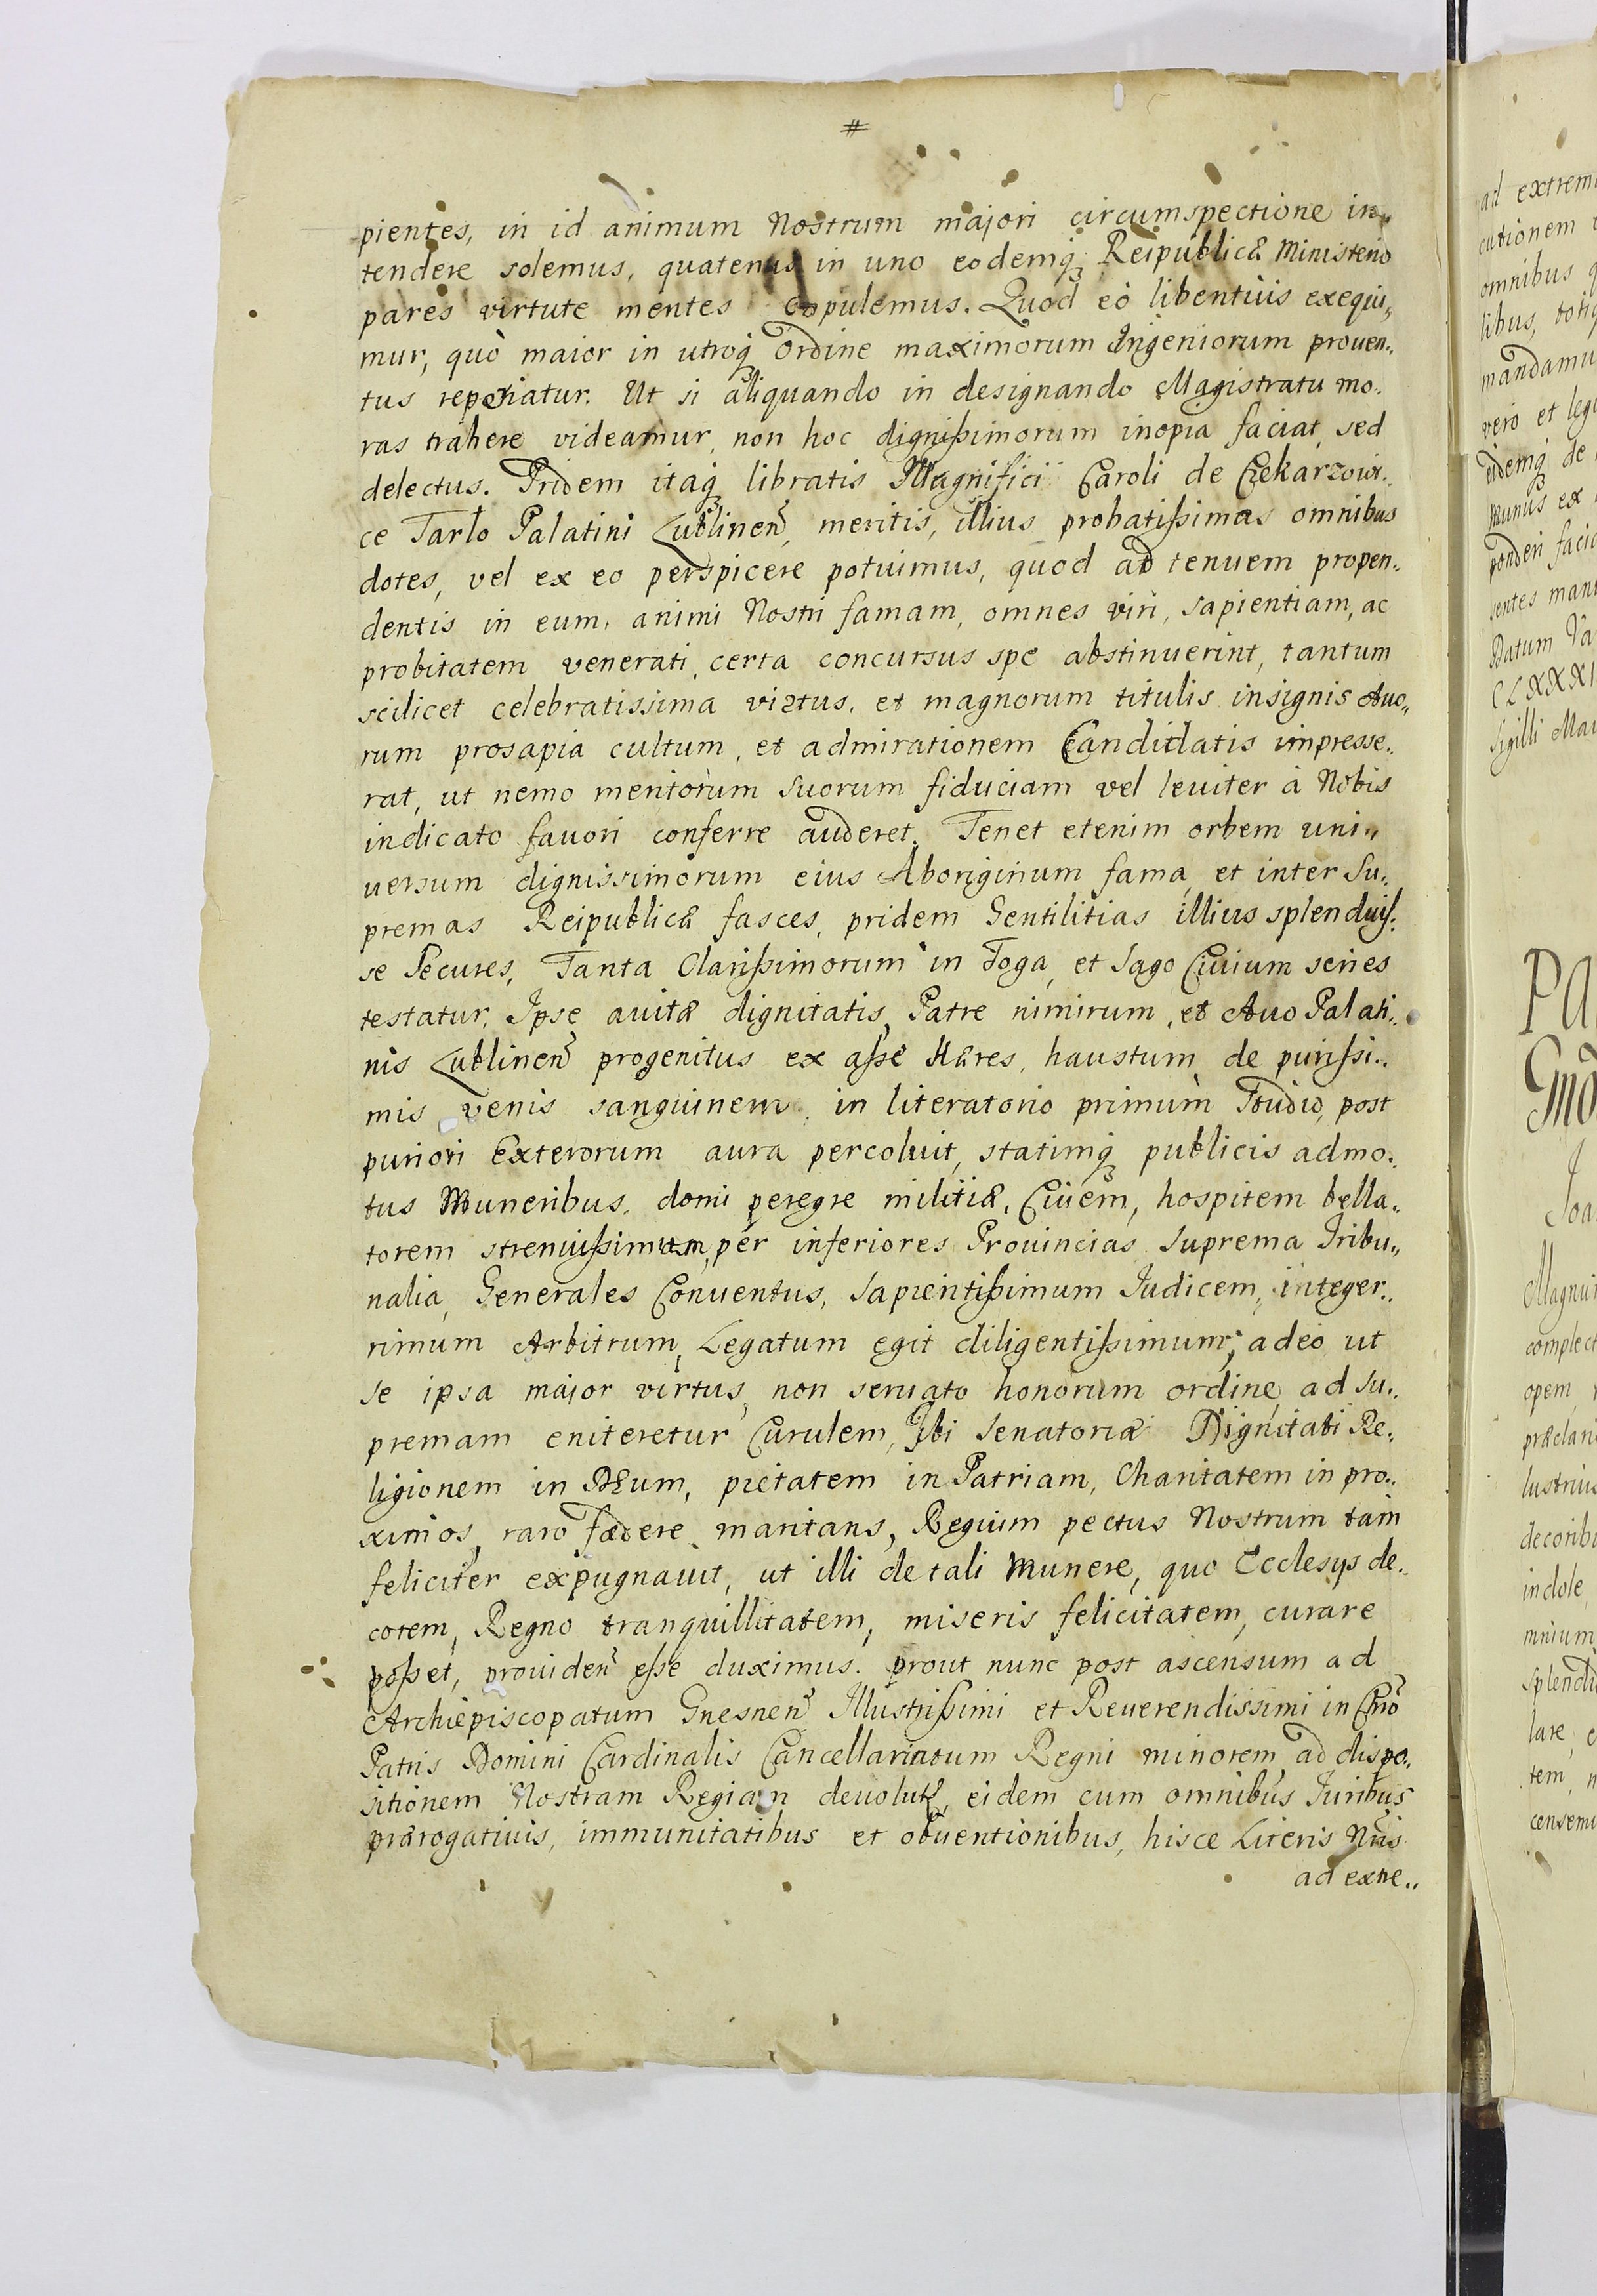 #
pientes, in id animum Nostrum majori circumspectione in„
tendere solemus, quatenus in uno eodemq; Reipublicæ Ministerio
pares virtute mentes copulemus. Quod eò libentiùs exequi„
mur, quò maior in utroq; Ordine maximorum Ingeniorum prouen„
tus reperiatur. Ut si aliquando in designando Magistratu mo„
ras trahere videamur, non hoc dignißimorum inopia faciat, sed
delectus. Pridem itaq; libratis Magnifici Caroli de Czekarzowi„
ce Tarlo Palatini Lublinen̄, meritis, illius probatißimas omnibus
dotes, vel ex eo perspicere potuimus, quod ad tenuem propen„
dentis in eum, animi Nostri famam, omnes viri, sapientiam, ac
probitatem venerati, certa concursus spe abstinuerint, tantum
scilicet celebratissima virtus, et magnorum titulis insignis Auo„
rum prosapia cultum, et admirationem Candidatis impresse„
rat, ut nemo meritorum suorum fiduciam vel leuiter à Nobis
indicato fauori conferre auderet. Tenet etenim orbem uni„
uersum dignissimorum eius Aboriginum fama, et inter Su„
premas Reipublicæ fasces, pridem Gentilitias illius splenduis„
se Secures, Tanta Clarißimorum in Toga, et Sago Ciuium series
testatur. Ipse auitæ dignitatis, Patre nimirum, et Auo Palati„
nis Lublinen̄ progenitus ex aße Hæres, haustum de purißi„
mis venis sanguinem, in literatorio primùm Studio, post
puriori Exterorum aura percoluit, statimq; publicis admo„
tus Muneribus, domi peregre militiæ, Ciuem, hospitem bella„
torem strenuißimum, per inferiores Prouincias Suprema Tribu„
nalia, Generales Conuentus, Sapientißimum Judicem, integer„
rimum Arbitrum, Legatum egit diligentißimum; adeò ut
se ipsa maior virtus, non seruato honorum ordine, ad su„
premam eniteretur Curulem, Ibi Senatoriæ Dignitati Re„
ligionem in DEum, pietatem in Patriam, Charitatem in pro„
ximos, raro fœdere maritans, Regium pectus Nostrum tam
feliciter expugnauit, ut illi de tali Munere, quo Ecclesijs de„
corem, Regno tranquillitatem, miseris felicitatem, curare
poßet, prouiden̄ eße duximus. prout nunc post ascensum ad
Archiepiscopatum Gnesnen̄ Illustrißimi et Reuerendissimi in Chrō
Patris Domini Cardinalis Cancellariatum Regni minorem, ad dispo„
sitionem Nostram Regiam deuolut̄, eidem cum omnibus Juribus
prærogatiuis, immunitatibus et obuentionibus, hisce Literis Nr̄is
ad extre„
ad extrem
cutionem
omnibus
libus, totiq
mandamu
vero et leg
eidemq; de
munus ex
ponderi faci
sentes man
Datum Va
CLXXXI
Sigilli Mai
Joa
Magnu
complect
opem
præclari
lustriu
decorib
indole
mnium
splendi
lare
tem
censem